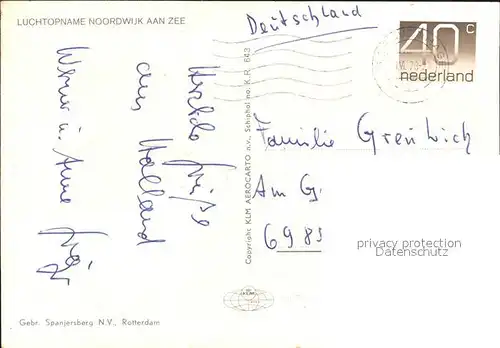 LUCHTOPNAME NOORDWIJK AAN ZEE
Deutschland
40 c
nederland
Herzliche Grüße
aus Holland
Werner u. Anne
Copyright KLM AEROCARTO n.v., Schiphol no. K.R. 643
Familie
Am G.
6983
privacy protection
watermark
Gebr. Spanjersberg N.V., Rotterdam